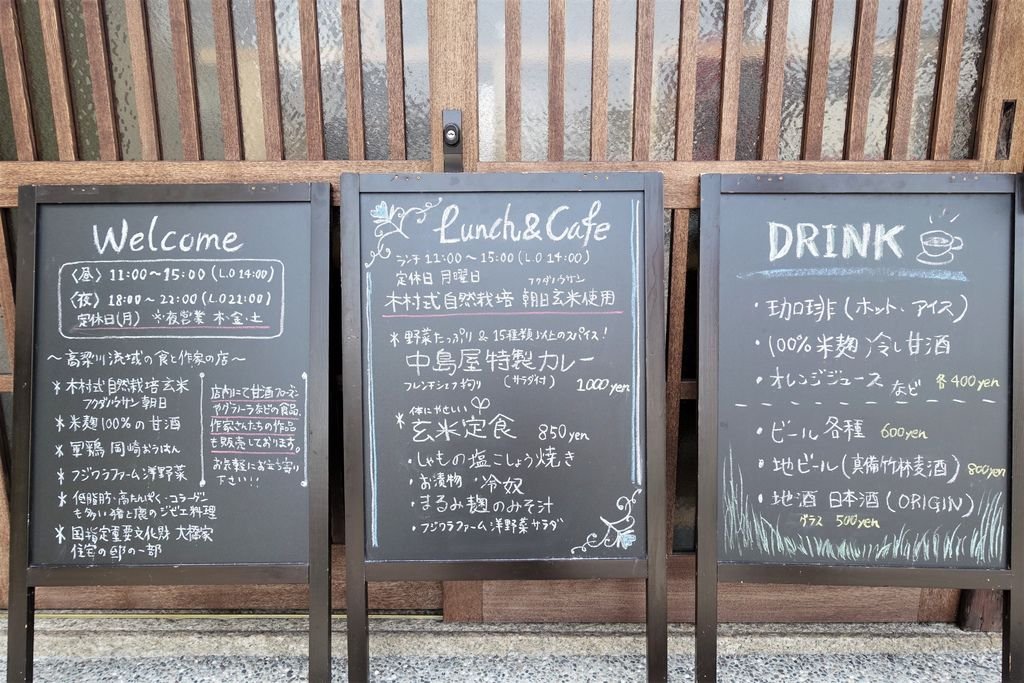 Welcome
〈昼〉11:00〜15:00 (L.O 14:00)
〈夜〉18:00〜22:00 (L.O 21:00)
定休日(月) ※夜営業 木・金・土
〜高梁川流域の食と作家の店〜
* 木村式自然栽培玄米
フクダ/ウサン 朝日
* 米麹100%の甘酒
* 軍鶏 岡崎おうはん
* フジワラファーム洋野菜
* 低脂肪・高たんぱく・コラーゲン
も多い猪と鹿のジビエ料理
* 国指定重要文化財 大橋家
住宅の邸の一部
店内にて甘酒フローズン
やグラノーラなどの食品、
作家さんたちの作品
も販売しております。
お気軽にお立ち寄り
下さい!!
Lunch & Cafe
ランチ 11:00〜15:00 (L.O 14:00)
定休日 月曜日
フクダ/ウサン
木村式自然栽培 朝日玄米使用
* 野菜たっぷり & 15種類以上のスパイス!
中島屋特製カレー
フレンチシェフ ギョリ (サラダ付) 1000yen
* 体にやさしい
玄米定食 850yen
・しゃもの塩こしょう焼き
・お漬物 ・冷奴
・まるみ麹のみそ汁
・フジワラファーム洋野菜サラダ
DRINK
・珈琲(ホット・アイス)
・100%米麹 冷し甘酒
・オレンジジュース など 各400yen
・ビール各種 600yen
・地ビール(真備竹林麦酒) 800yen
・地酒 日本酒(ORIGIN)
グラス 500yen